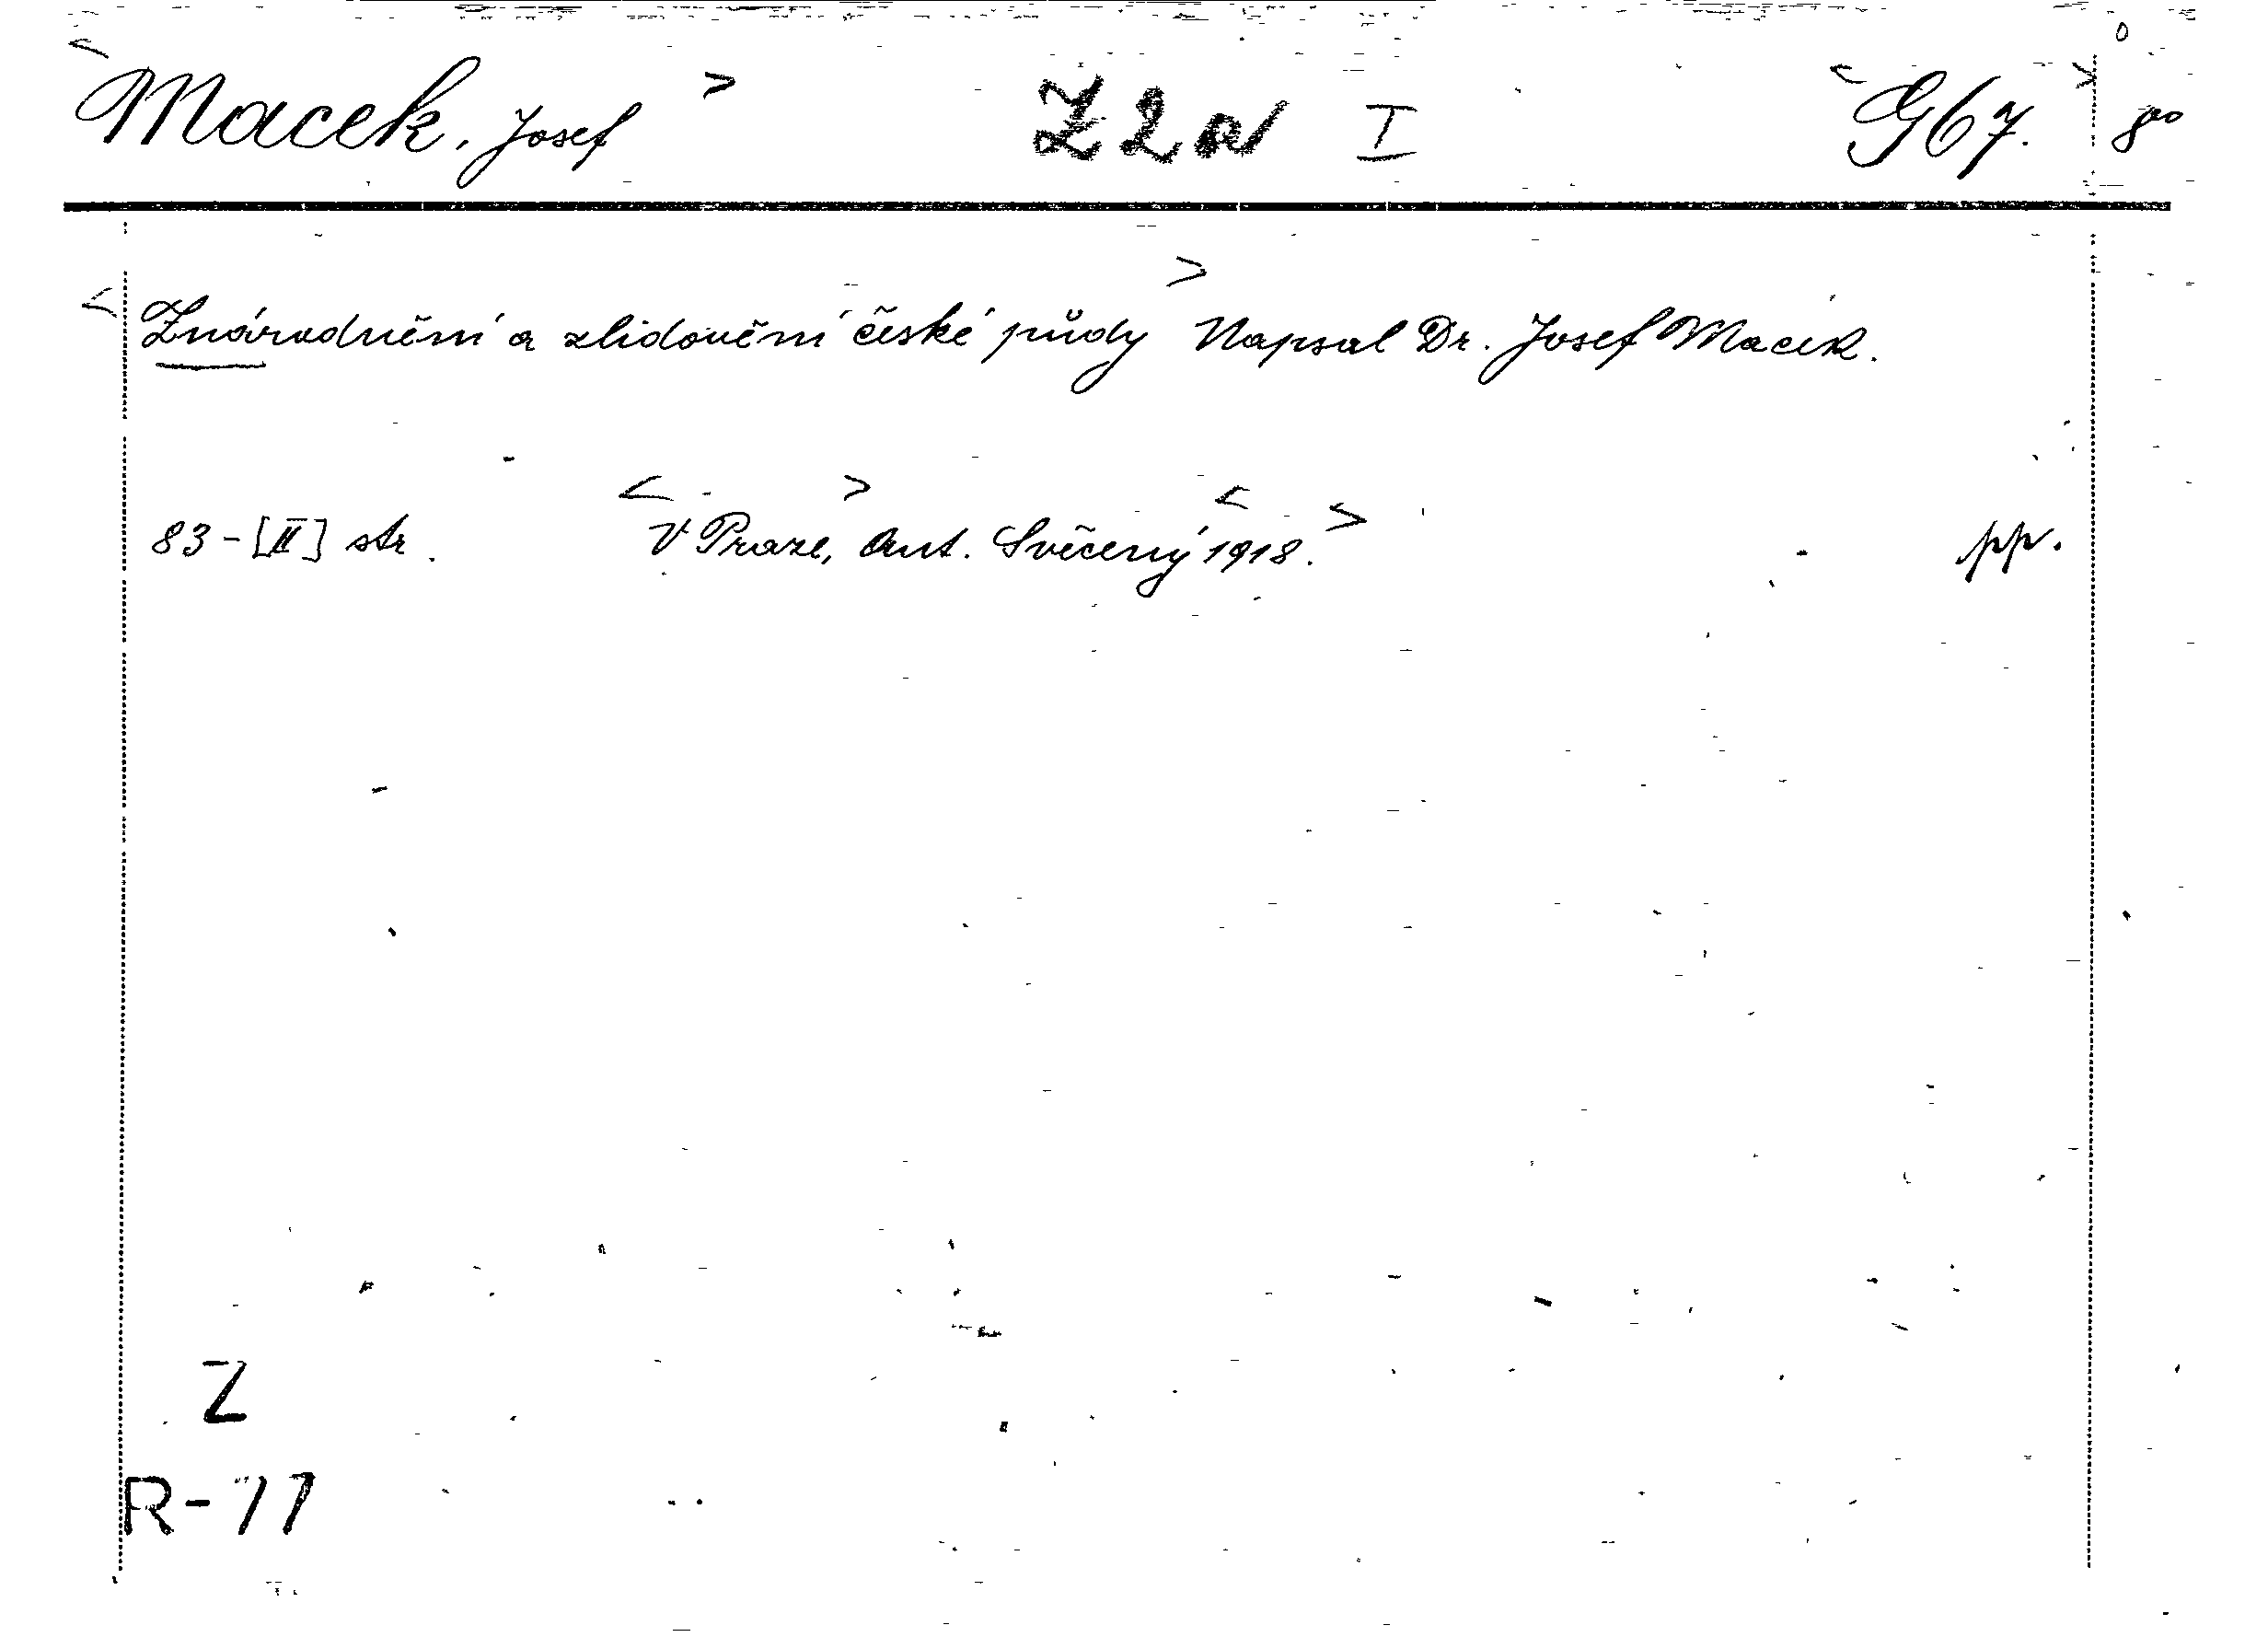 < Macek, Josef > Z 2 a I < G 67. > 8°
< Znárodnění a zlidovění české půdy > Napsal Dr. Josef Macek.
83-[II] str. < V Praze, > Ant. Svěcený < 1918. > pp.
Z
R-77